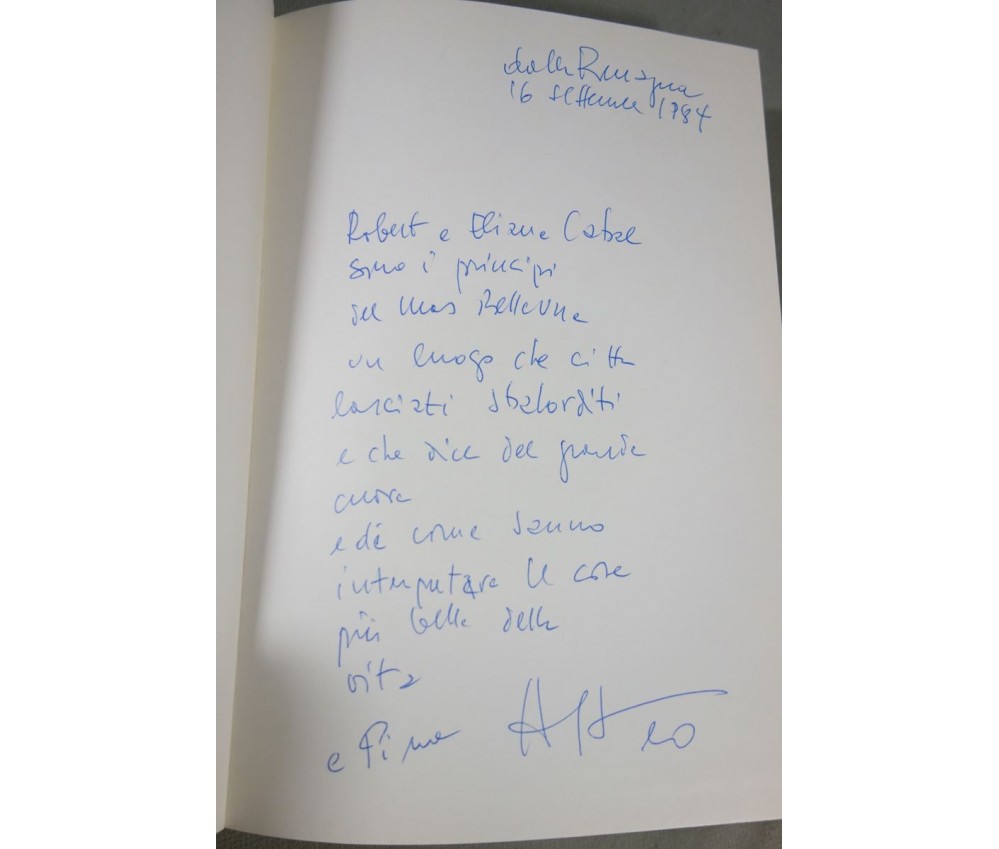 dalla Romagna
16 settembre 1984
Robert e Eliane Cabal
sono i principi
del Mas Bellevue
un luogo che ci ha
lasciati sbalorditi
e che dice del grande
cuore
e di come sanno
interpretare le cose
più belle della
vita
e Pina